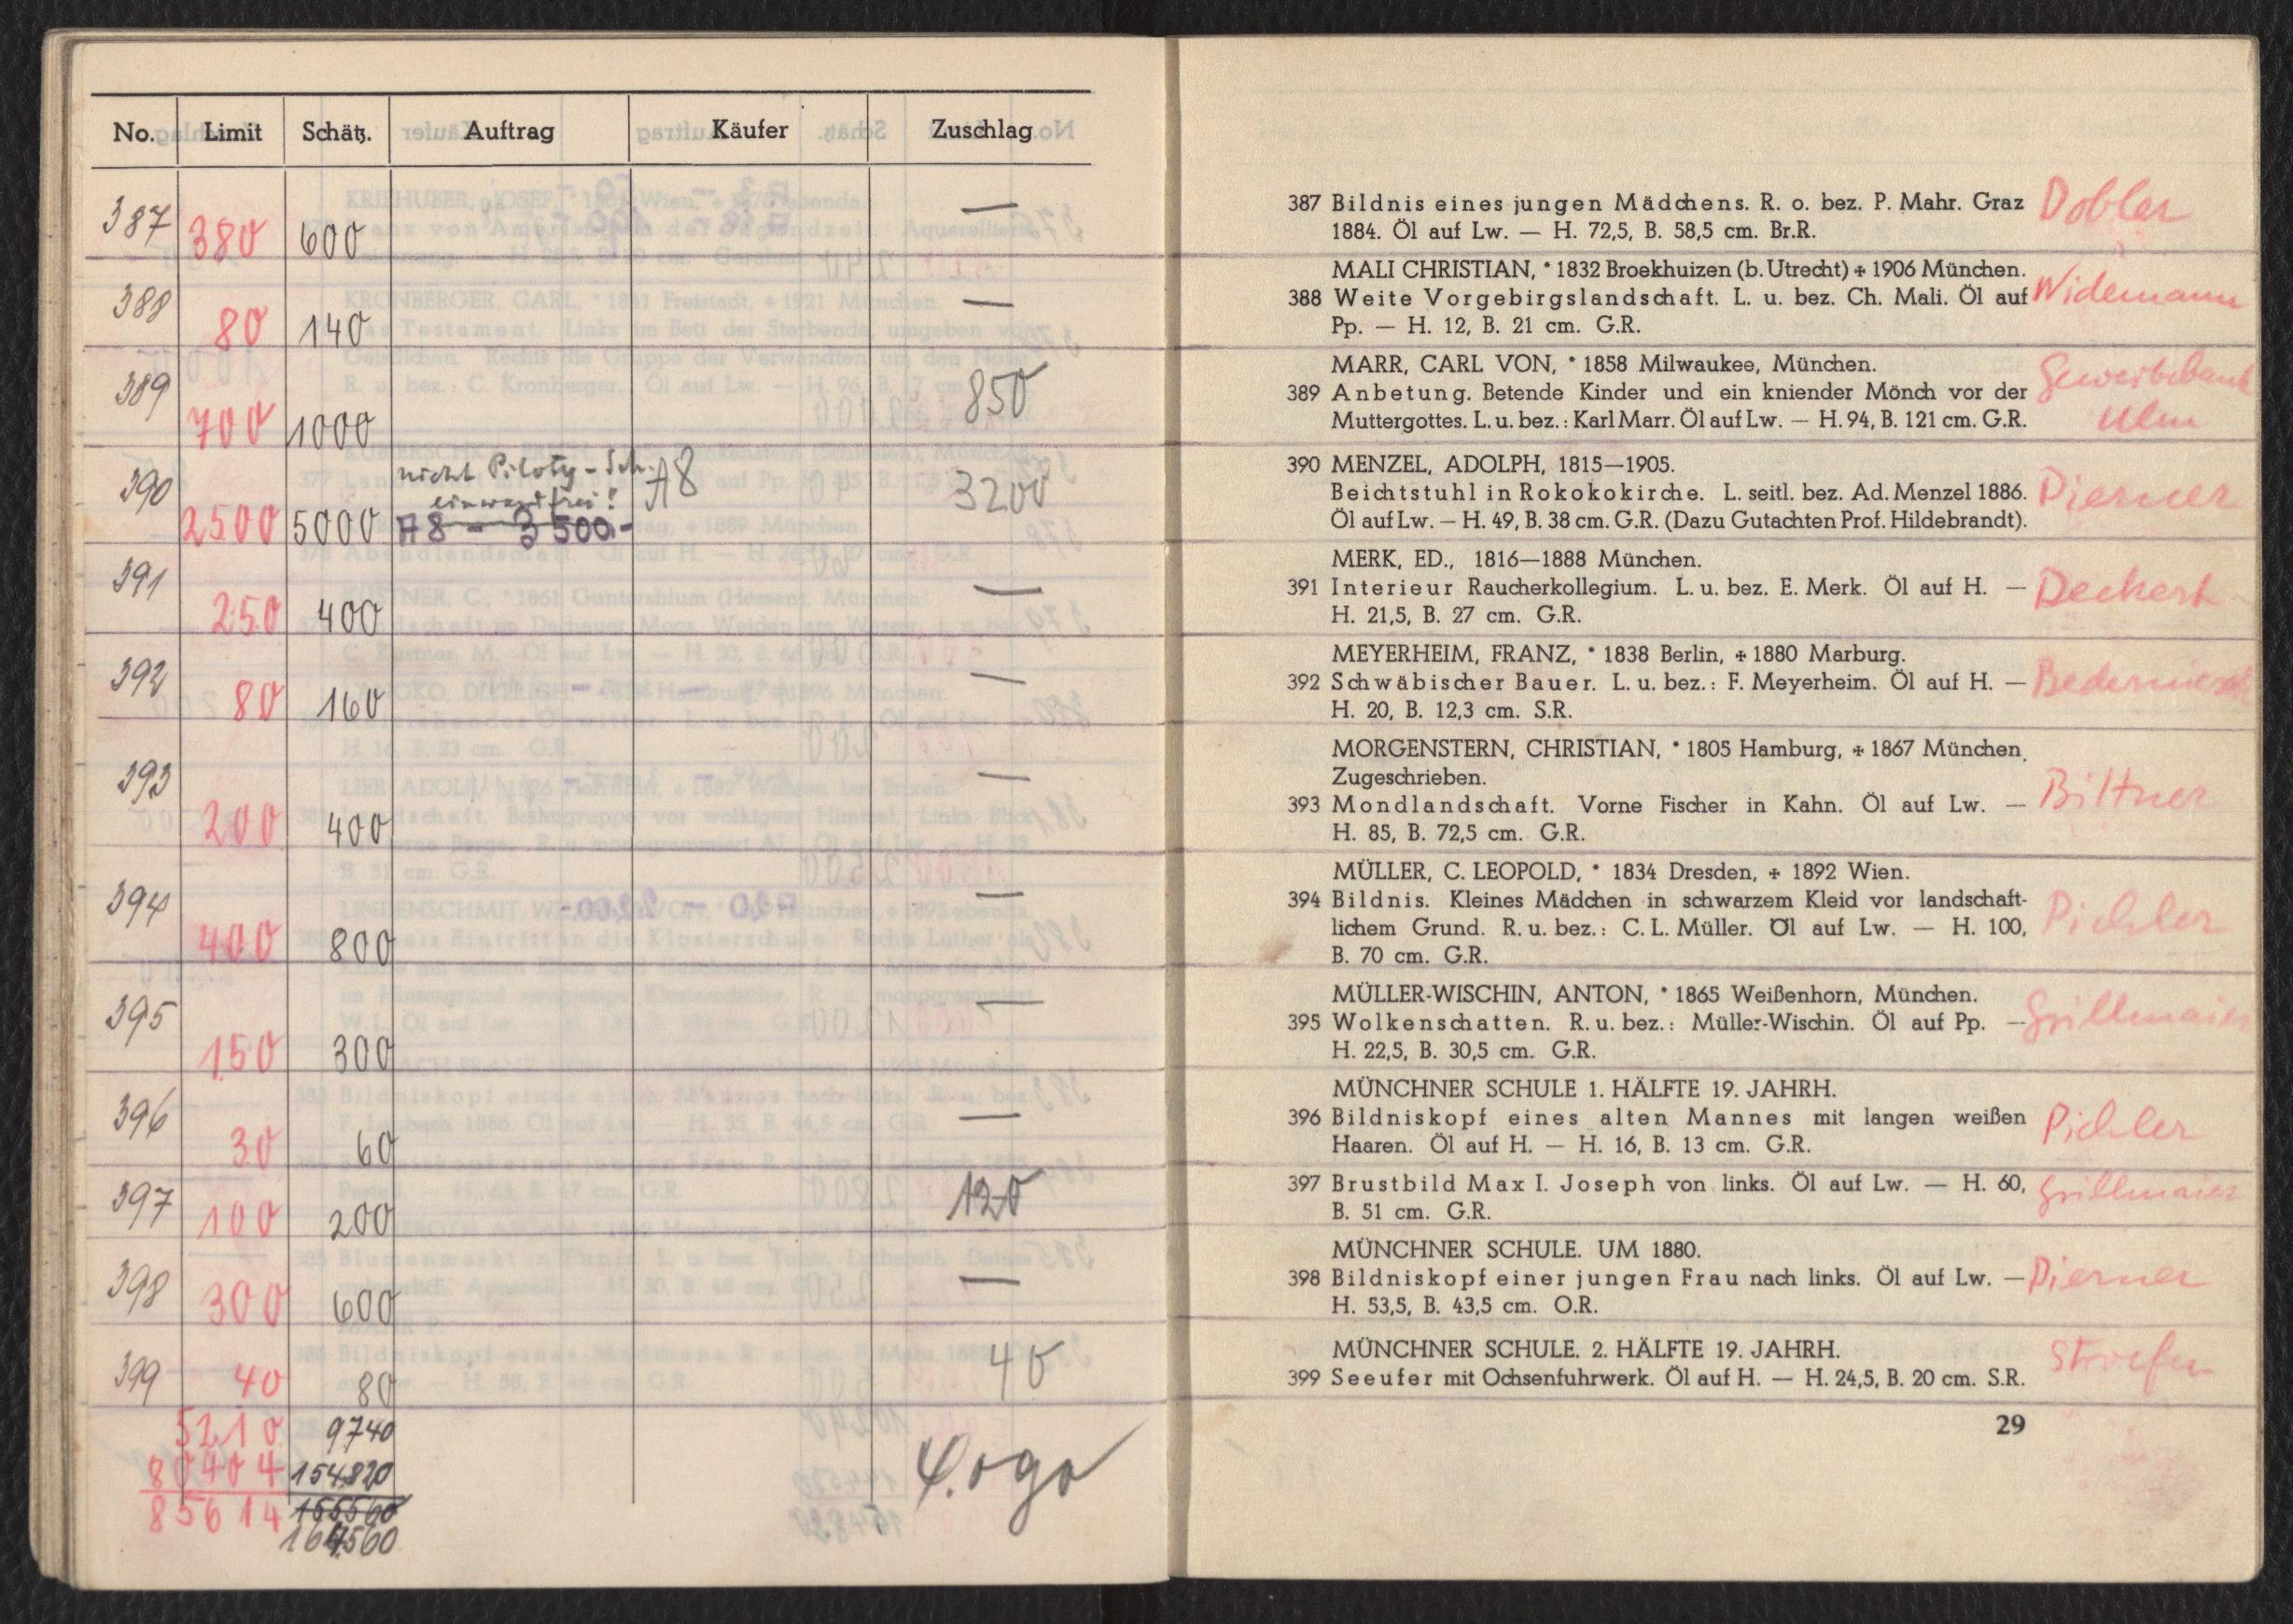 No. Limit Schätz. Auftrag Käufer Zuschlag
387 380 600 —
388 80 140 —
389 700 1000 850
nicht Piloty-Sch.
einwandfrei!
390 2500 5000 A8 - 3500.- A8 3200
391 250 400 —
392 80 160 —
393 200 400 —
394 400 800 —
395 150 300 —
396 30 60 —
397 100 200 120
398 300 600 —
399 40 80 40
5210 9740
80404 154820
85614 155560
164560
387 Bildnis eines jungen Mädchens. R. o. bez. P. Mahr. Graz Dobler
1884. Öl auf Lw. — H. 72,5, B. 58,5 cm. Br.R.
MALI CHRISTIAN, * 1832 Broekhuizen (b. Utrecht) + 1906 München.
388 Weite Vorgebirgslandschaft. L. u. bez. Ch. Mali. Öl auf Widemann
Pp. — H. 12, B. 21 cm. G.R.
MARR, CARL VON, * 1858 Milwaukee, München.
389 Anbetung. Betende Kinder und ein kniender Mönch vor der Gewerbebank
Muttergottes. L. u. bez.: Karl Marr. Öl auf Lw. — H. 94, B. 121 cm. G.R. Ulm
390 MENZEL, ADOLPH, 1815—1905.
Beichtstuhl in Rokokokirche. L. seitl. bez. Ad. Menzel 1886. Pierner
Öl auf Lw. — H. 49, B. 38 cm. G.R. (Dazu Gutachten Prof. Hildebrandt).
MERK, ED., 1816—1888 München.
391 Interieur Raucherkollegium. L. u. bez. E. Merk. Öl auf H. — Deckert
H. 21,5, B. 27 cm. G.R.
MEYERHEIM, FRANZ, * 1838 Berlin, + 1880 Marburg.
392 Schwäbischer Bauer. L. u. bez.: F. Meyerheim. Öl auf H. —
H. 20, B. 12,3 cm. S.R.
MORGENSTERN, CHRISTIAN, * 1805 Hamburg, + 1867 München.
Zugeschrieben.
393 Mondlandschaft. Vorne Fischer in Kahn. Öl auf Lw. — Bittner
H. 85, B. 72,5 cm. G.R.
MÜLLER, C. LEOPOLD, * 1834 Dresden, + 1892 Wien.
394 Bildnis. Kleines Mädchen in schwarzem Kleid vor landschaft-
lichem Grund. R. u. bez.: C. L. Müller. Öl auf Lw. — H. 100, Pichler
B. 70 cm. G.R.
MÜLLER-WISCHIN, ANTON, * 1865 Weißenhorn, München.
395 Wolkenschatten. R. u. bez.: Müller-Wischin. Öl auf Pp. — Grillmaier
H. 22,5, B. 30,5 cm. G.R.
MÜNCHNER SCHULE 1. HÄLFTE 19. JAHRH.
396 Bildniskopf eines alten Mannes mit langen weißen Pichler
Haaren. Öl auf H. — H. 16, B. 13 cm. G.R.
397 Brustbild Max I. Joseph von links. Öl auf Lw. — H. 60, Grillmaier
B. 51 cm. G.R.
MÜNCHNER SCHULE. UM 1880.
398 Bildniskopf einer jungen Frau nach links. Öl auf Lw. — Pierner
H. 53,5, B. 43,5 cm. O.R.
MÜNCHNER SCHULE. 2. HÄLFTE 19. JAHRH.
399 Seeufer mit Ochsenfuhrwerk. Öl auf H. — H. 24,5, B. 20 cm. S.R.
29